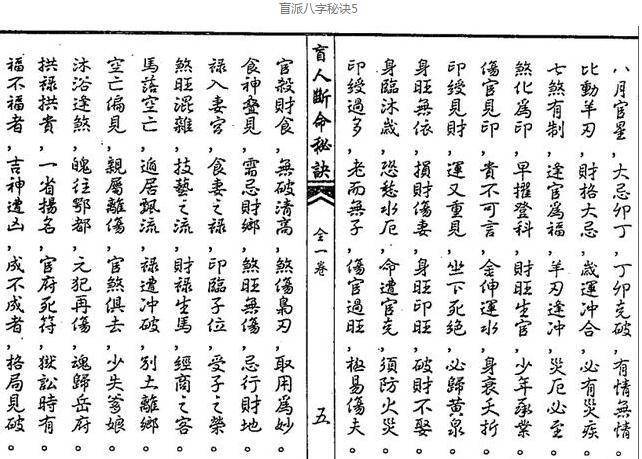 盲派八字秘诀5
八月官星,大忌卯丁,丁卯克破,有情無情。
比動羊刃,財格大忌,歲運冲合,必有災疾。
七煞有制,逢官爲福,羊刃逢冲,災厄必至。
煞化爲印,早擢登科,財旺生官,少年承業。
傷官見印,貴不可言,金伸運水,身衰夭折。
印綬見財,運又重見,坐下死絶,必歸黄泉。
身旺無依,損財傷妻,身旺印旺,破財不娶。
身臨沐歲,恐愁水厄,命遭官克,須防火災。
印綬過多,老而無子,傷官過旺,極易傷夫。
盲人斷命秘訣 全一卷 五
官殺財食,無破清高,煞傷梟刃,取用爲妙。
食神叠見,需忌財鄉,煞旺無傷,忌行財地。
禄入妻宮,食妻之禄,印臨子位,受子之榮。
煞旺混雜,技藝之流,財禄生馬,經商之客。
馬落空亡,遁居飄流,禄遭冲破,别土離鄉。
空亡偏見,親屬離傷,官煞俱去,少失爹娘。
沐浴逢煞,魄往鄂都,元犯再傷,魂歸岳府。
拱禄拱貴,一省揚名,官府死符,獄訟時有。
福不福者,吉神遭凶,成不成者,格局見破。